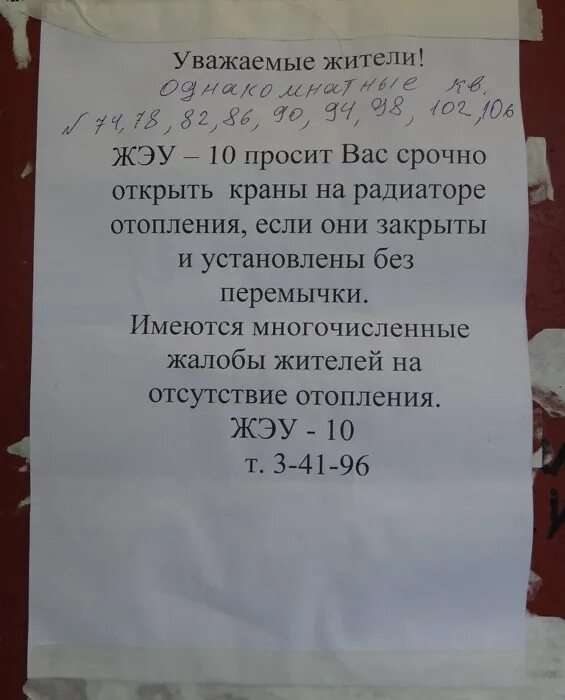 Уважаемые жители!
однакомнатные кв.
№ 74, 78, 82, 86, 90, 94, 98, 102, 106
ЖЭУ – 10 просит Вас срочно
открыть краны на радиаторе
отопления, если они закрыты
и установлены без
перемычки.
Имеются многочисленные
жалобы жителей на
отсутствие отопления.
ЖЭУ - 10
т. 3-41-96